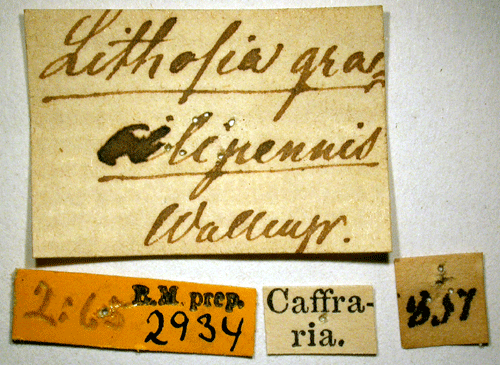 Lithosia gra-
cilipennis
Wallengr.
R.M. prep.
2934
Caffra-
ria.